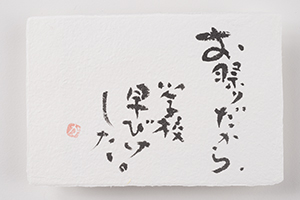 お祭りだから、
学校
早びけ
したい。